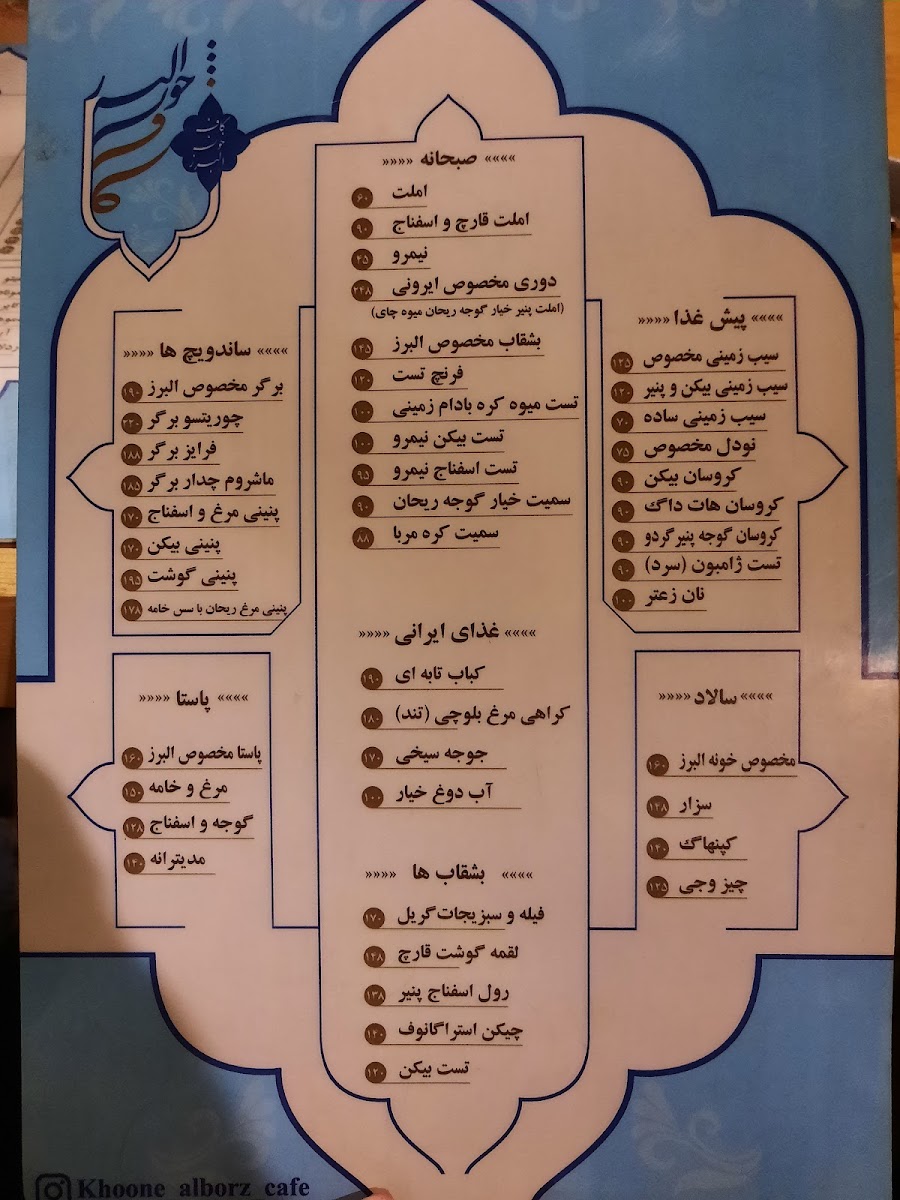 کافه خونه البرز
«««« صبحانه »»»»
املت ۶۰
املت قارچ و اسفناج ۹۰
نیمرو ۴۵
دوری مخصوص ایرونی ۲۴۸
(املت پنیر خیار گوجه ریحان میوه چای)
بشقاب مخصوص البرز ۱۴۵
فرنچ تست ۱۲۰
تست میوه کره بادام زمینی ۱۰۰
تست بیکن نیمرو ۱۰۰
تست اسفناج نیمرو ۹۵
سمیت خیار گوجه ریحان ۹۰
سمیت کره مربا ۸۸
«««« پیش غذا »»»»
سیب زمینی مخصوص ۱۳۵
سیب زمینی بیکن و پنیر ۱۲۰
سیب زمینی ساده ۷۰
نودل مخصوص ۷۵
کروسان بیکن ۹۰
کروسان هات داگ ۹۰
کروسان گوجه پنیر گردو ۹۰
تست ژامبون (سرد) ۹۰
نان زعتر ۱۰۰
«««« ساندویچ ها »»»»
برگر مخصوص البرز ۱۹۰
چوریتسو برگر ۲۲۰
فرایز برگر ۱۸۸
ماشروم چدار برگر ۱۸۵
پنینی مرغ و اسفناج ۱۷۰
پنینی بیکن ۱۷۰
پنینی گوشت ۱۹۵
پنینی مرغ ریحان با سس خامه ۱۷۸
«««« غذای ایرانی »»»»
کباب تابه ای ۱۹۰
کراهی مرغ بلوچی (تند) ۱۸۰
جوجه سیخی ۱۷۰
آب دوغ خیار ۱۰۰
«««« سالاد »»»»
مخصوص خونه البرز ۱۶۰
سزار ۱۴۸
کپنهاگ ۱۴۰
چیز وجی ۱۳۵
«««« پاستا »»»»
پاستا مخصوص البرز ۱۶۰
مرغ و خامه ۱۵۰
گوجه و اسفناج ۱۲۸
مدیترانه ۱۴۰
«««« بشقاب ها »»»»
فیله و سبزیجات گریل ۱۷۰
لقمه گوشت قارچ ۱۴۸
رول اسفناج پنیر ۱۳۸
چیکن استراگانوف ۱۴۰
تست بیکن ۱۲۰
Khoone_alborz_cafe